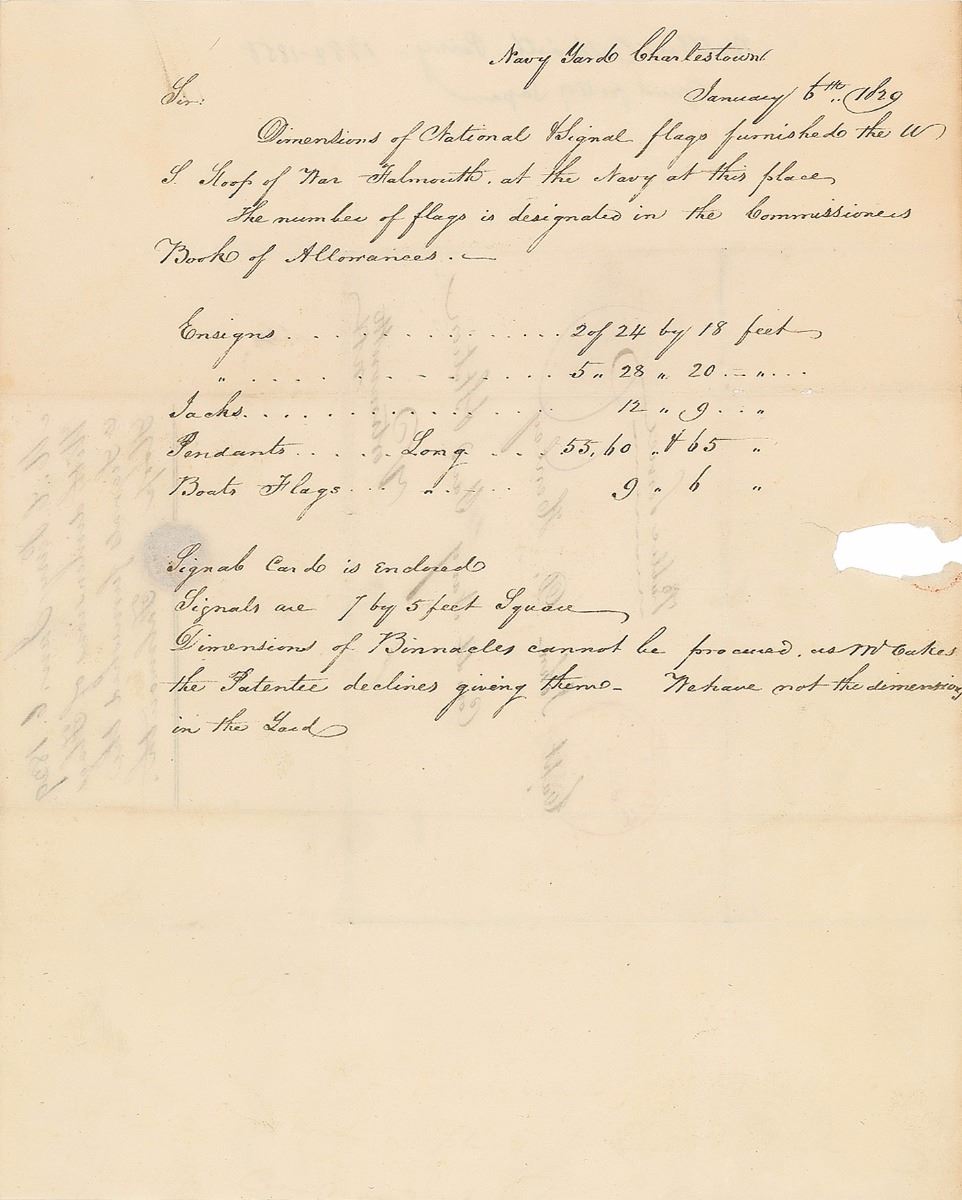 Navy Yard Charlestown
Sir: January 6th.. 1829
Dimensions of National & Signal flags furnished the U
S. Sloop of War Falmouth. at the Navy at this place
The number of flags is designated in the Commissioners
Book of Allowances. —
Ensigns . . . . . . . . . . . . . . . 2 of 24 by 18 feet
" . . . . . . . . . . . . . . . 5 " 28 " 20 . — " . . .
Jacks. . . . . . . . . . . . . . . 12 " 9 . . "
Pendants . . . . . Long . . . 55, 60 " & 65 "
Boats Flags . . . " . – . . 9 " 6 "
Signal Card is Enclosed
Signals are 7 by 5 feet Square
Dimensions of Binnacles cannot be procured. as Mr Eakes
the Patentee declines giving them – We have not the dimensions
in the Yard